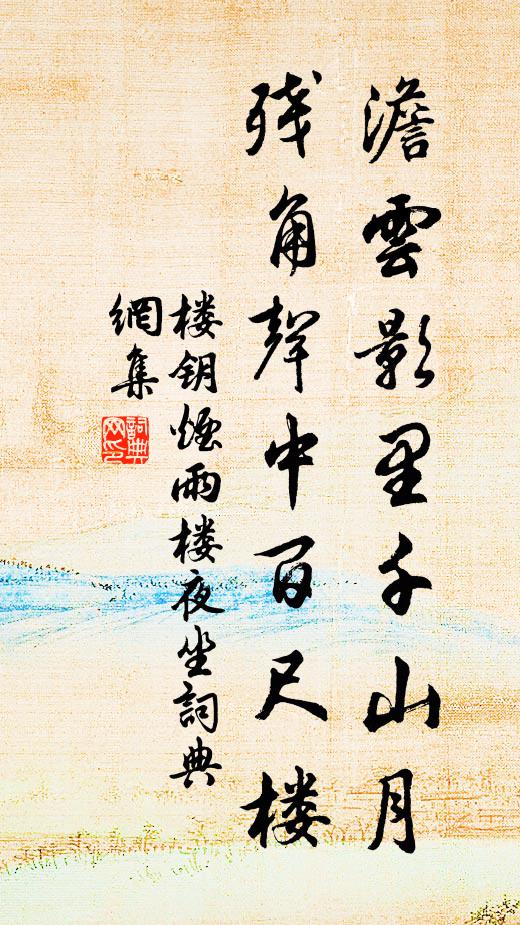 澹雲影里千山月
残角聲中百尺楼
楼钥煙雨楼夜坐詞典
網集
詞典
网印